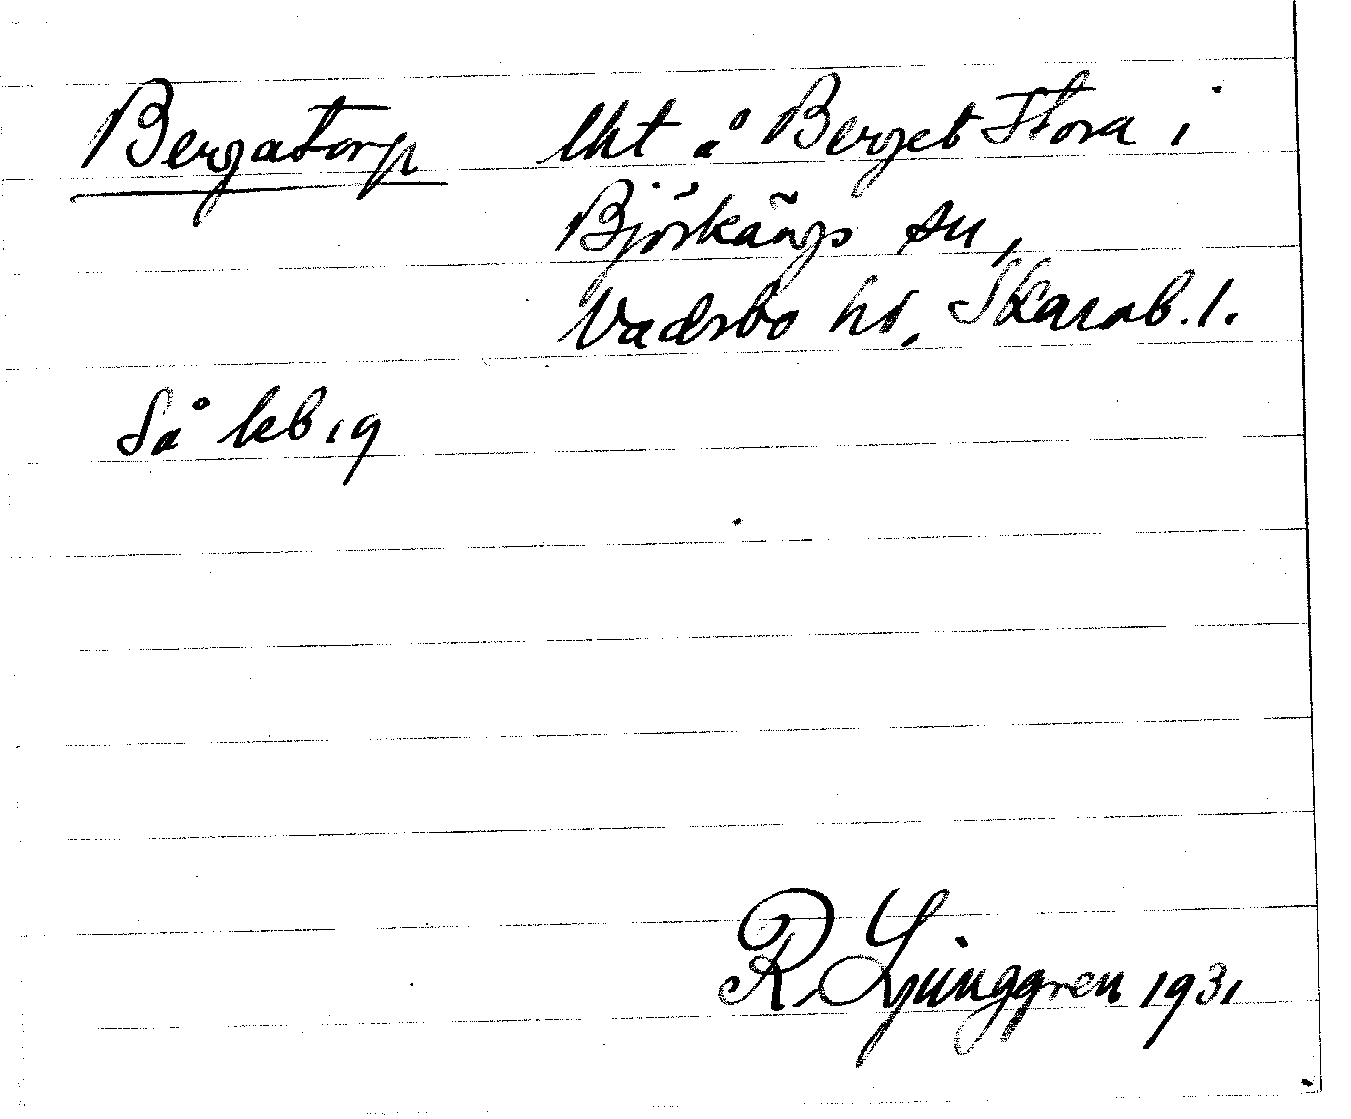 Bergatorp lht å Berget Stora i
Björkängs sn,
Vadsbo hd, Skarab. l.
Så kb 19
R. Ljunggren 1931